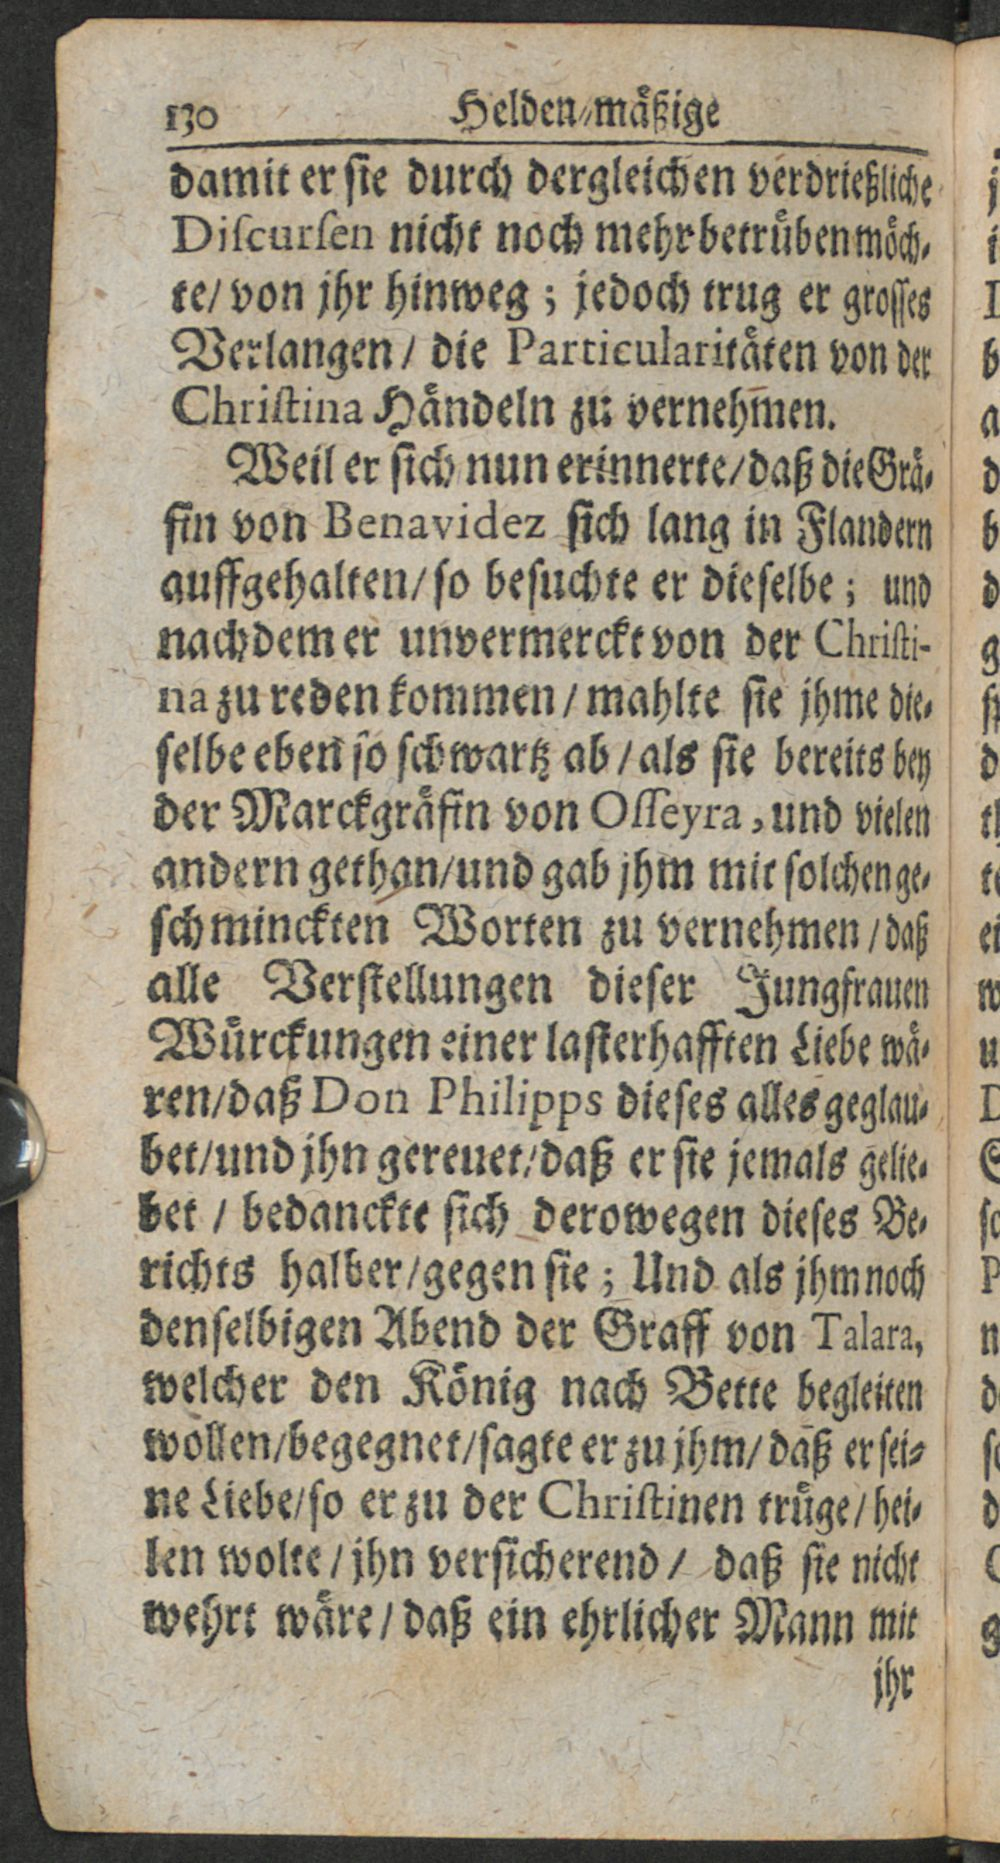 130 Helden-mäßige
damit er sie durch dergleichen verdrießliche
Discursen nicht noch mehr betrüben möch-
te/ von jhr hinweg; jedoch trug er grosses
Verlangen/ die Particularitäten von der
Christina Händeln zu vernehm̃en.
Weil er sich nun erinnerte/ daß die Grä-
fin von Benavidez sich lang in Flandern
auffgehalten/ so besuchte er dieselbe; und
nachdem er unvermerckt von der Christi-
na zu reden kommen/ mahlte sie jhme die-
selbe eben so schwartz ab/ als sie bereits bey
der Marckgräfin von Osseyra, und vielen
andern gethan/ und gab jhm mit solchen ge-
schminckten Worten zu vernehmen/ daß
alle Verstellungen dieser Jungfrauen
Würckungen einer lasterhafften Liebe wä-
ren/ daß Don Philipps dieses alles geglau-
bet/ und jhn gereuet/ daß er sie jemals gelie-
bet/ bedanckte sich derowegen dieses Be-
richts halber/ gegen sie; Und als jhm noch
denselbigen Abend der Graff von Talara,
welcher den König nach Bette begleiten
wollen/ begegnet/ sagte er zu jhm/ daß er sei-
ne Liebe/ so er zu der Christinen trüge/ hei-
len wolte/ jhn versicherend/ daß sie nicht
wehrt wäre/ daß ein ehrlicher Mann mit
jhr